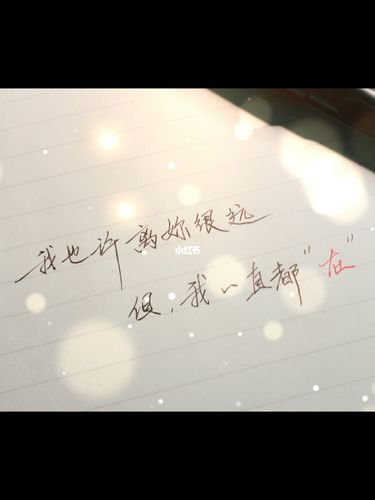 我也许离妳很远
小红书
但，我一直都"在"